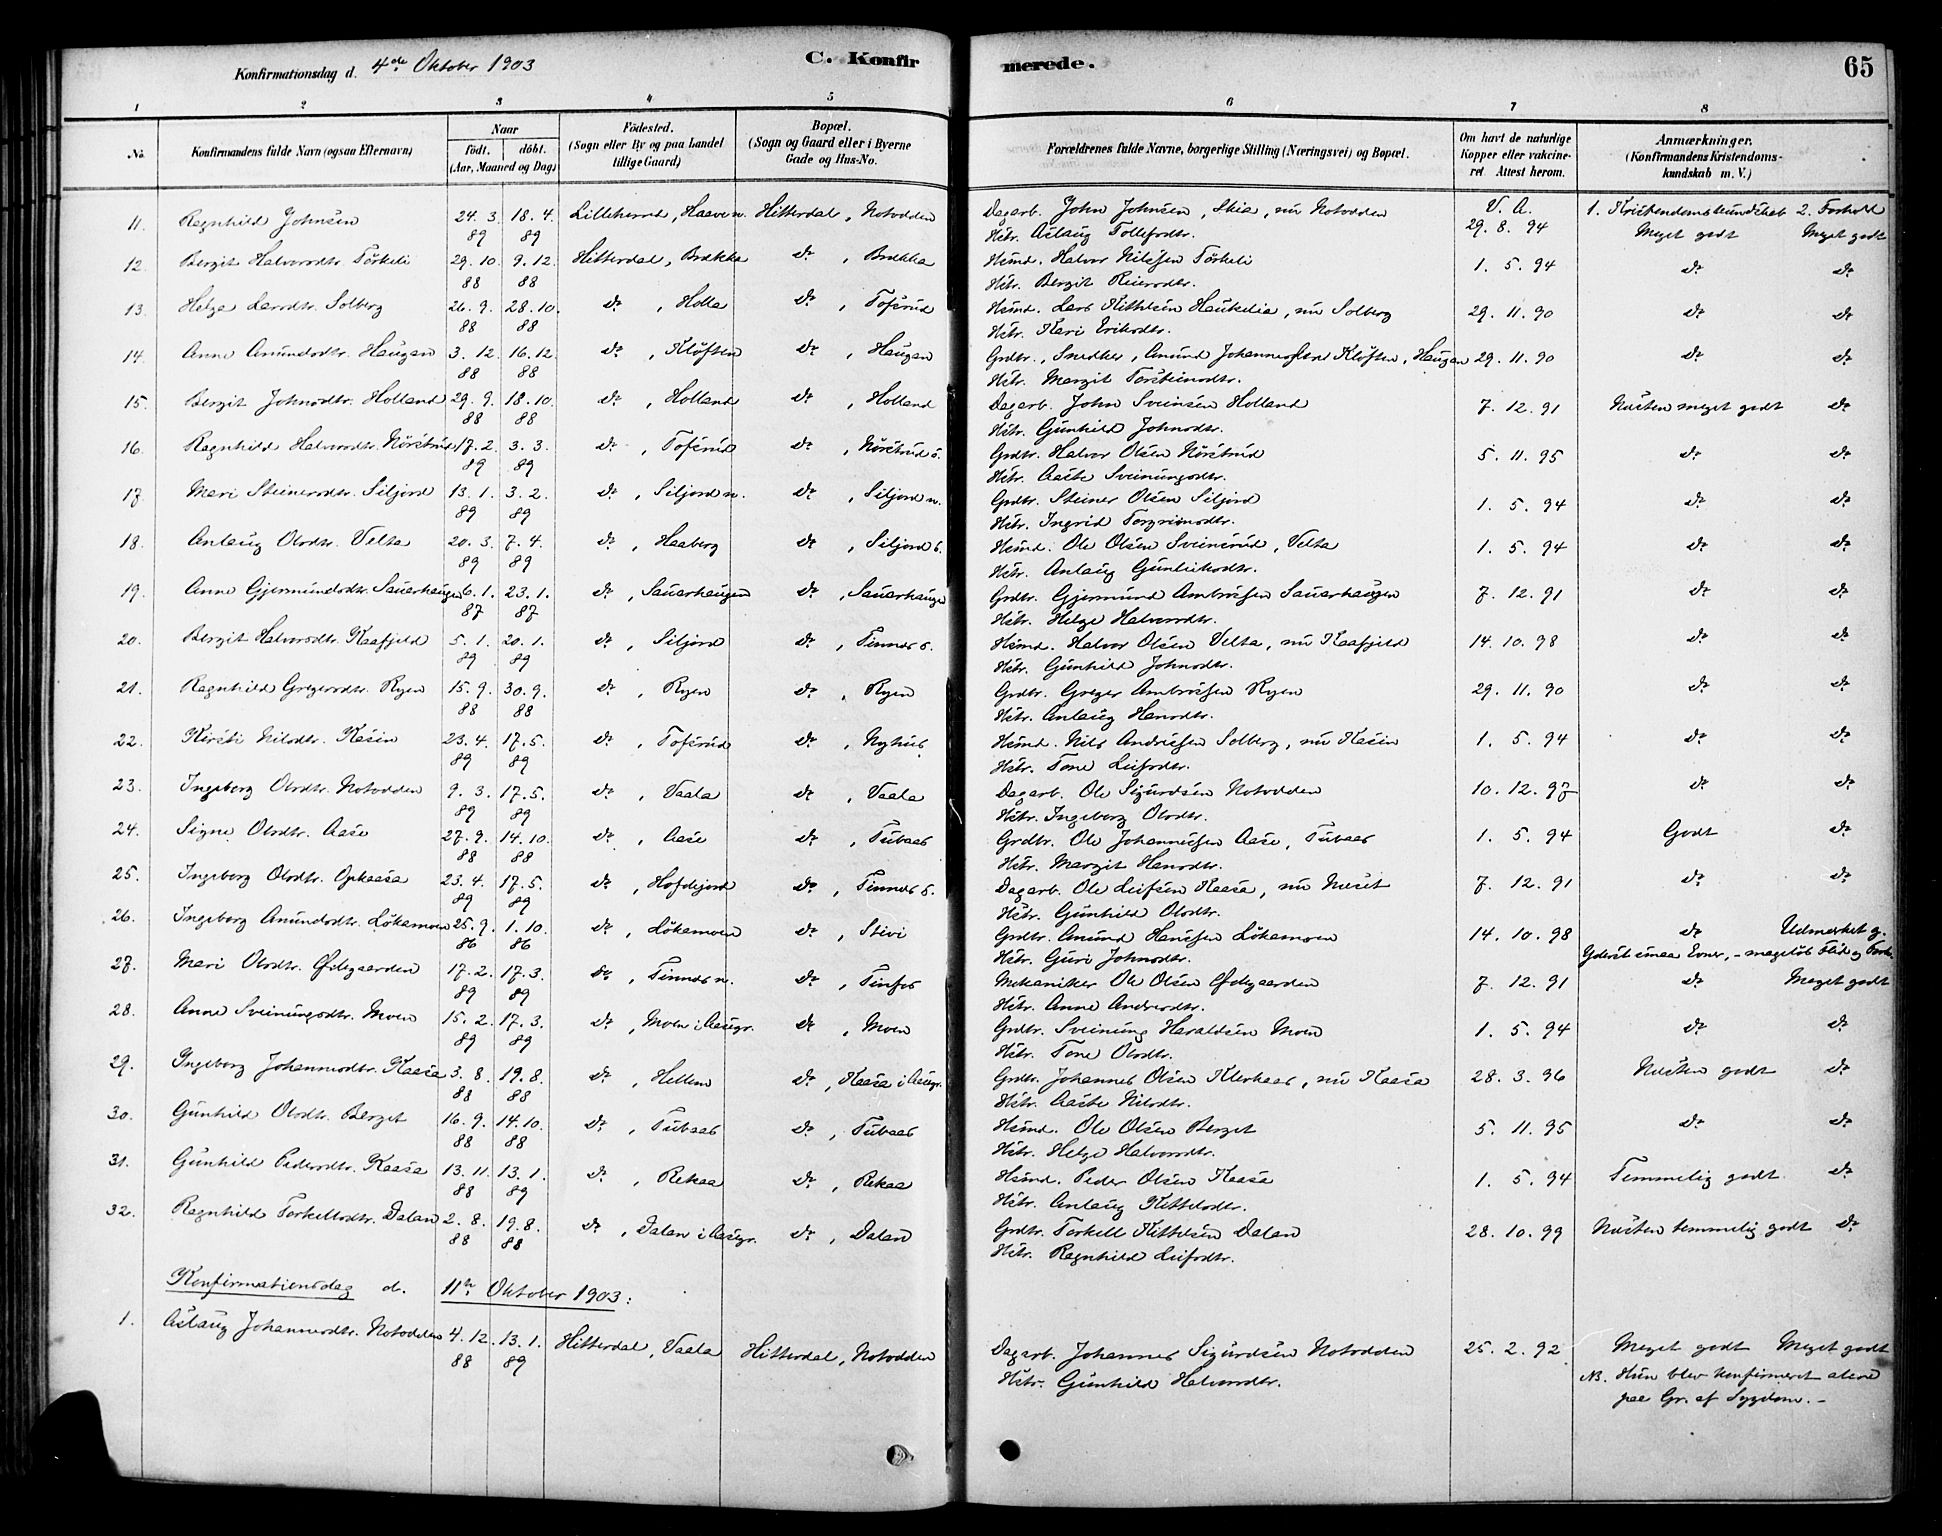 Konfirmationsdag d. 4de Oktober 1903 C. Konfirmerede. 65
1 2 3 4 5 6 7 8
No. Konfirmandens fulde Navn (ogsaa Efternavn) Naar födt. döbt. (Aar, Maaned og Dag) Födested. (Sogn eller By og paa Landet tillige Gaard) Bopæl. (Sogn og Gaard eller i Byerne Gade og Hus-No. Forældrenes fulde Navne, borgerlige Stilling (Næringsvei) og Bopæl. Om havt de naturlige Kopper eller vakcineret. Attest herom. Anmærkninger. (Konfirmandens Kristendomskundskab m. V.)
11. Ragnhild Johnsen 24. 3. 89 18. 4. 89 Lilleherred, Haave n. Hitterdal, Notodden Dagarb. John Johnsen, Skie, nu Notodden V. A. 29. 8. 94 1. Kristendomskundskab 2. Forhold
Hstr. Aslaug Tollefsdtr. Meget godt Meget godt
12. Bergit Halvorsdtr. Törkeli 29. 10. 88 9. 12. 88 Hitterdal, Brækka do, Brækka Hsmd. Halvor Nilssen Törkeli 1. 5. 94 do do
Hstr. Bergit Reiersdtr.
13. Helge Larsdtr. Solberg 26. 9. 88 28. 10. 88 do, Holla do, Tofsrud Hsmd. Lars Kittilsen Haukelia, nu Solberg 29. 11. 90 do do
Hstr. Kari Eriksdtr.
14. Anne Amundsdtr. Haugan 3. 12. 88 16. 12. 88 do, Klöften do, Haugan Grdbr., Snedker, Amund Johannessen Klöften, Haugan 29. 11. 90 do do
Hstr. Margit Torsteinsdtr.
15. Bergit Johnsdtr. Holland 29. 9. 88 18. 10. 88 do, Holland do, Holland Dagarb. John Sveinsen Holland 7. 12. 91 Næsten meget godt do
Hstr. Gunhild Johnsdtr.
16. Ragnhild Halvorsdtr. Nörstrud 17. 2. 89 3. 3. 89 do, Tofsrud do, Nörstrud s. Grdbr. Halvor Olsen Nörstrud 5. 11. 95 do do
Hstr. Aaste Sveinungsdtr.
17. Mari Steinersdtr. Siljord 13. 1. 89 3. 2. 89 do, Siljord n. do, Siljord n. Grdbr. Steiner Olsen Siljord 1. 5. 94 do do
Hstr. Ingrid Torgrimsdtr.
18. Anlaug Olsdtr. Velta 20. 3. 89 7. 4. 89 do, Haaberg do, Siljord s. Hsmd. Ole Olsen Sveinsrud, Velta 1. 5. 94 do do
Hstr. Anlaug Gunleiksdtr.
19. Anne Gjermundsdtr. Sauerhaugen 6. 1. 87 23. 1. 87 do, Sauerhaugen do, Sauerhaugen Grdbr. Gjermund Ambrosen Sauerhaugen 7. 12. 91 do do
Hstr. Helge Halvorsdtr.
20. Bergit Halvorsdtr. Kaafjeld 5. 1. 89 20. 1. 89 do, Siljord do, Tinnes s. Hsmd. Halvor Olsen Velta, nu Kaafjeld 14. 10. 98 do do
Hstr. Gunhild Johnsdtr.
21. Ragnhild Gregersdtr. Ryen 15. 9. 88 30. 9. 88 do, Ryen do, Ryen Grdbr. Greger Ambrosen Ryen 29. 11. 90 do do
Hstr. Anlaug Hansdtr.
22. Kirsti Nilsdtr. Kasin 23. 4. 89 17. 5. 89 do, Tofsrud do, Nyhus Hsmd. Nils Andressen Solberg, nu Kasin 1. 5. 94 do do
Hstr. Tone Leifsdtr.
23. Ingeborg Olsdtr. Notodden 9. 3. 89 17. 5. 89 do, Vaala do, Vaala Dagarb. Ole Sigurdsen Notodden 10. 12. 97 do do
Hstr. Ingeborg Olsdtr.
24. Signe Olsdtr. Aase 27. 9. 88 14. 10. 88 do, Aase do, Tubaas Grdbr. Ole Johannessen Aase, Tubaas 1. 5. 94 Godt do
Hstr. Margit Hansdtr.
25. Ingeborg Olsdtr. Opkaasa 23. 4. 89 17. 5. 89 do, Hofdejord do, Tinnes s. Dagarb. Ole Leifsen Kaasa, nu Neset 7. 12. 91 do do
Hstr. Gunhild Olsdtr.
26. Ingeborg Amundsdtr. Lökamoen 25. 9. 86 1. 10. 86 do, Lökamoen do, Stivi Grdbr. Amund Hansen Lökamoen 14. 10. 98 do Udmerket g.
Hstr. Guri Johnsdtr. Yderst smaa Evner, - mageløs Flid og Forh.
27. Mari Olsdtr. Ødegaarden 17. 2. 89 17. 3. 89 do, Tinnes n. do, Tinfos Mekaniker Ole Olsen Ødegaarden 7. 12. 91 do Meget godt
Hstr. Anne Andersdtr.
28. Anne Sveinungsdtr. Moen 15. 2. 89 17. 3. 89 do, Moen i Aasegr. do, Moen Grdbr. Sveinung Haraldsen Moen 1. 5. 94 do do
Hstr. Tone Olsdtr.
29. Ingeborg Johannesdtr. Kaasa 3. 8. 88 19. 8. 88 do, Hellem do, Kaasa i Aasegr. Grdbr. Johannes Olsen Klevhaas, nu Kaasa 28. 3. 96 Næsten godt do
Hstr. Aaste Nilsdtr.
30. Gunhild Olsdtr. Berget 16. 9. 88 14. 10. 88 do, Tubaas do, Tubaas Hsmd. Ole Olsen Berget 5. 11. 95 do do
Hstr. Helge Halvorsdtr.
31. Gunhild Pedersdtr. Kaasa 13. 11. 88 13. 1. 89 do, Rekaa do, Rekaa Hsmd. Peder Olsen Kaasa 1. 5. 94 Temmelig godt do
Hstr. Anlaug Kittelsdtr.
32. Ragnhild Torkelsdtr. Dalan 2. 8. 88 19. 8. 88 do, Dalan i Aasegr. do, Dalan Grdbr. Torkell Kittilsen Dalan 28. 10. 99 Næsten temmelig godt do
Hstr. Ragnhild Leifsdtr.
Konfirmationsdag d. 11te Oktober 1903:
1. Aslaug Johannesdtr. Notodden 4. 12. 88 13. 1. 89 Hitterdal, Vaala Hitterdal, Notodden Dagarb. Johannes Sigurdsen Notodden 25. 2. 92 Meget godt Meget godt
Hstr. Gunhild Halvorsdtr. NB. Hun blev konfirmeret alene
paa Gr. af Sygdom. -